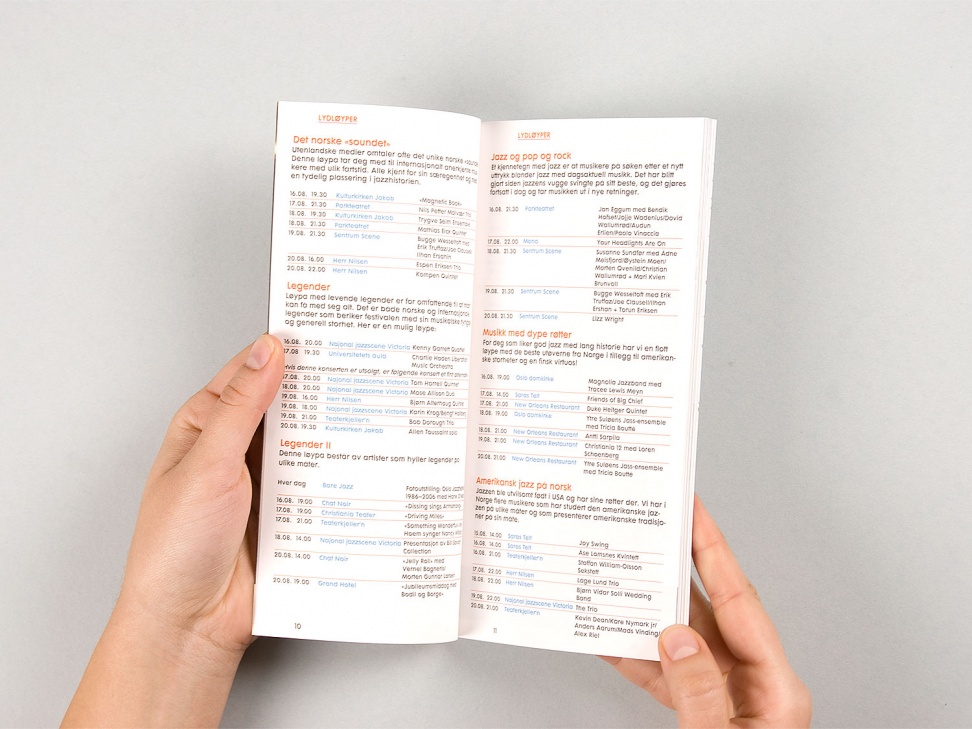 LYDLØYPER
Det norske «soundet»
Utenlandske medier omtaler ofte det unike norske
Denne løypa tar deg med til internasjonalt anerkjente
kere med ulik fartstid. Alle kjent for sin særegenhet og
en tydelig plassering i jazzhistorien.
16.08. 19.30 Kulturkirken Jakob «Magnetic Book»
17.08. 21.30 Parkteatret Nils Petter Molvær Trio
18.08. 19.30 Kulturkirken Jakob Trygve Seim Ensemble
18.08. 21.30 Parkteatret Mathias Eick Quintet
19.08. 21.30 Sentrum Scene Bugge Wesseltoft med
Erik Truffaz/Joe Clausell/
Ilhan Ersahin
20.08. 16.00 Herr Nilsen Espen Eriksen Trio
20.08. 22.00 Herr Nilsen Kampen Quintet
Legender
Løypa med levende legender er for omfattende til at man
kan få med seg alt. Det er både norske og internasjonale
legender som beriker festivalen med sin musikalske tyngde
og generell storhet. Her er en mulig løype:
16.08. 20.00 Nasjonal jazzscene Victoria Kenny Garrett Quartet
17.08 19.30 Universitetets aula Charlie Haden Liberation
Music Orchestra
Hvis denne konserten er utsolgt, er følgende konsert et fint alternativ
17.08. 20.00 Nasjonal jazzscene Victoria Tom Harrell Quintet
18.08. 20.00 Nasjonal jazzscene Victoria Mose Allison Duo
19.08. 16.00 Herr Nilsen Bjørn Alterhaug Quintet
19.08. 18.00 Nasjonal jazzscene Victoria Karin Krog/Bengt Hallberg
19.08. 21.00 Teaterkjeller'n Bob Dorough Trio
20.08. 19.30 Kulturkirken Jakob Allen Toussaint solo
Legender II
Denne løypa består av artister som hyller legender på
ulike måter.
Hver dag Bare Jazz Fotoutstilling: Oslo Jazzfestival
1986–2006 med Hans
16.08. 19.00 Chat Noir «Dissing sings Armstrong»
17.08. 19.00 Christiania Teater «Driving Miles»
17.08. 21.00 Teaterkjeller'n «Something Wonderful»
Haem synger Nancy
18.08. 14.00 Nasjonal jazzscene Victoria Presentasjon av
Collection
20.08. 14.00 Chat Noir «Jelly Roll» med
Vernel Bagneris/
Morten Gunnar Larsen
20.08. 19.00 Grand Hotel «Jubileumsmiddag med
Bodil og Børge»
10
LYDLØYPER
Jazz og pop og rock
Et kjennetegn med jazz er at musikere på søken etter et nytt
uttrykk blander jazz med dagsaktuell musikk. Det har blitt
gjort siden jazzens vugge svingte på sitt beste, og det gjøres
fortsatt i dag og tar musikken ut i nye retninger.
16.08. 21.30 Parkteatret Jan Eggum med Bendik
Hofset/Jojje Wadenius/David
Wallumrød/Audun
Erlien/Paolo Vinaccia
17.08. 22.00 Mono Your Headlights Are On
18.08. 21.30 Sentrum Scene Susanne Sundfør med Ådne
Meisfjord/Øystein Moen/
Morten Qvenild/Christian
Wallumrød + Mari Kvien
Brunvoll
19.08. 21.30 Sentrum Scene Bugge Wesseltoft med Erik
Truffaz/Joe Clausell/Ilhan
Ershan + Torun Eriksen
20.08. 21.30 Sentrum Scene Lizz Wright
Musikk med dype røtter
For deg som liker god jazz med lang historie har vi en flott
løype med de beste utøverne fra Norge i tillegg til amerikan-
ske storheter og en finsk virtuos!
16.08. 19.00 Oslo domkirke Magnolia Jazzband med
Tracee Lewis Meyn
17.08. 14.00 Saras Telt Friends of Big Chief
17.08. 21.00 New Orleans Restaurant Duke Heitger Quintet
18.08. 19.00 Oslo domkirke Ytre Suløens Jass-ensemble
med Tricia Boutté
18.08. 21.00 New Orleans Restaurant Antti Sarpila
19.08. 21.00 New Orleans Restaurant Christiania 12 med Loren
Schoenberg
20.08. 21.00 New Orleans Restaurant Ytre Suløens Jass-ensemble
med Tricia Boutté
Amerikansk jazz på norsk
Jazzen ble utvilsomt født i USA og har sine røtter der. Vi har i
Norge flere musikere som har studert den amerikanske jaz-
zen på ulike måter og som presenterer amerikanske tradisjo-
ner på sin måte.
15.08. 14.00 Saras Telt Jay Swing
16.08. 14.00 Saras Telt Åse Lomsnes Kvintett
16.08. 21.00 Teaterkjeller'n Staffan William-Olsson
Sekstett
17.08. 22.00 Herr Nilsen Lage Lund Trio
18.08. 22.00 Herr Nilsen Bjørn Vidar Solli Wedding
Band
19.08. 22.00 Nasjonal jazzscene Victoria The Trio
20.08. 21.00 Teaterkjeller'n Kevin Dean/Kåre Nymark jr/
Anders Aarum/Mads Vinding/
Alex Riel
11